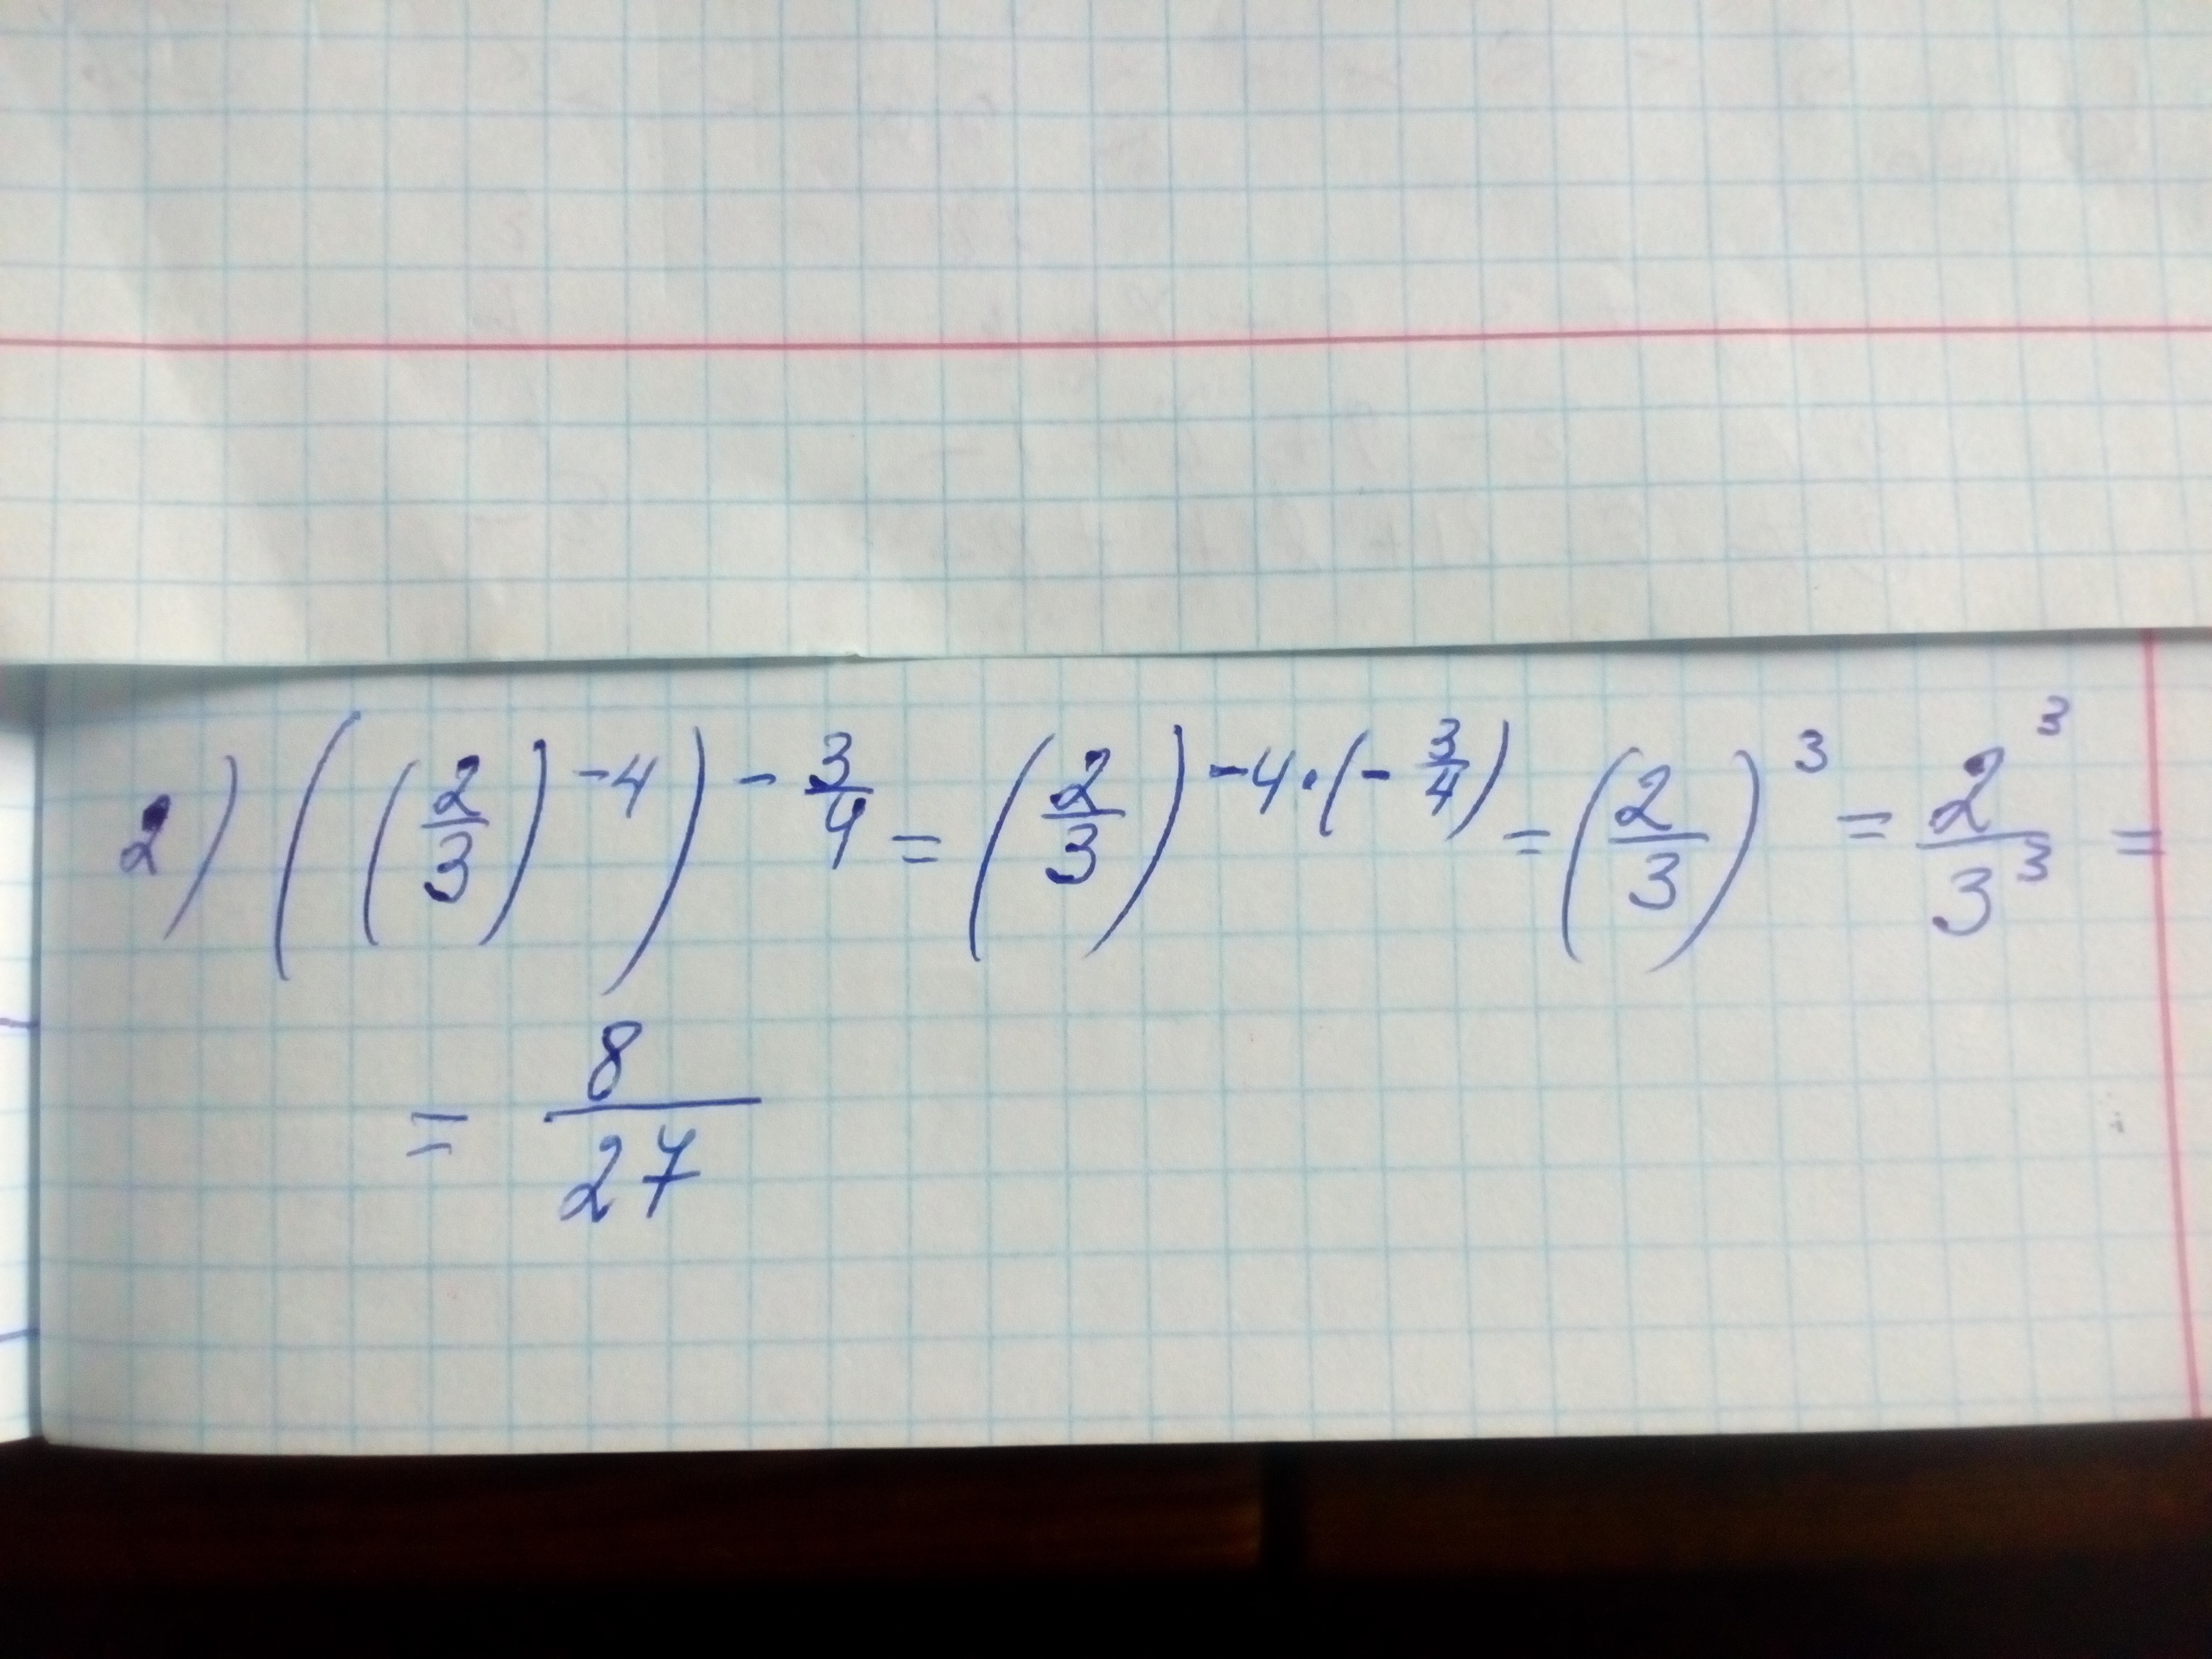 2) ((2/3)^-4)^-3/4 = (2/3)^-4·(-3/4) = (2/3)^3 = 2^3/3^3 =
= 8/27